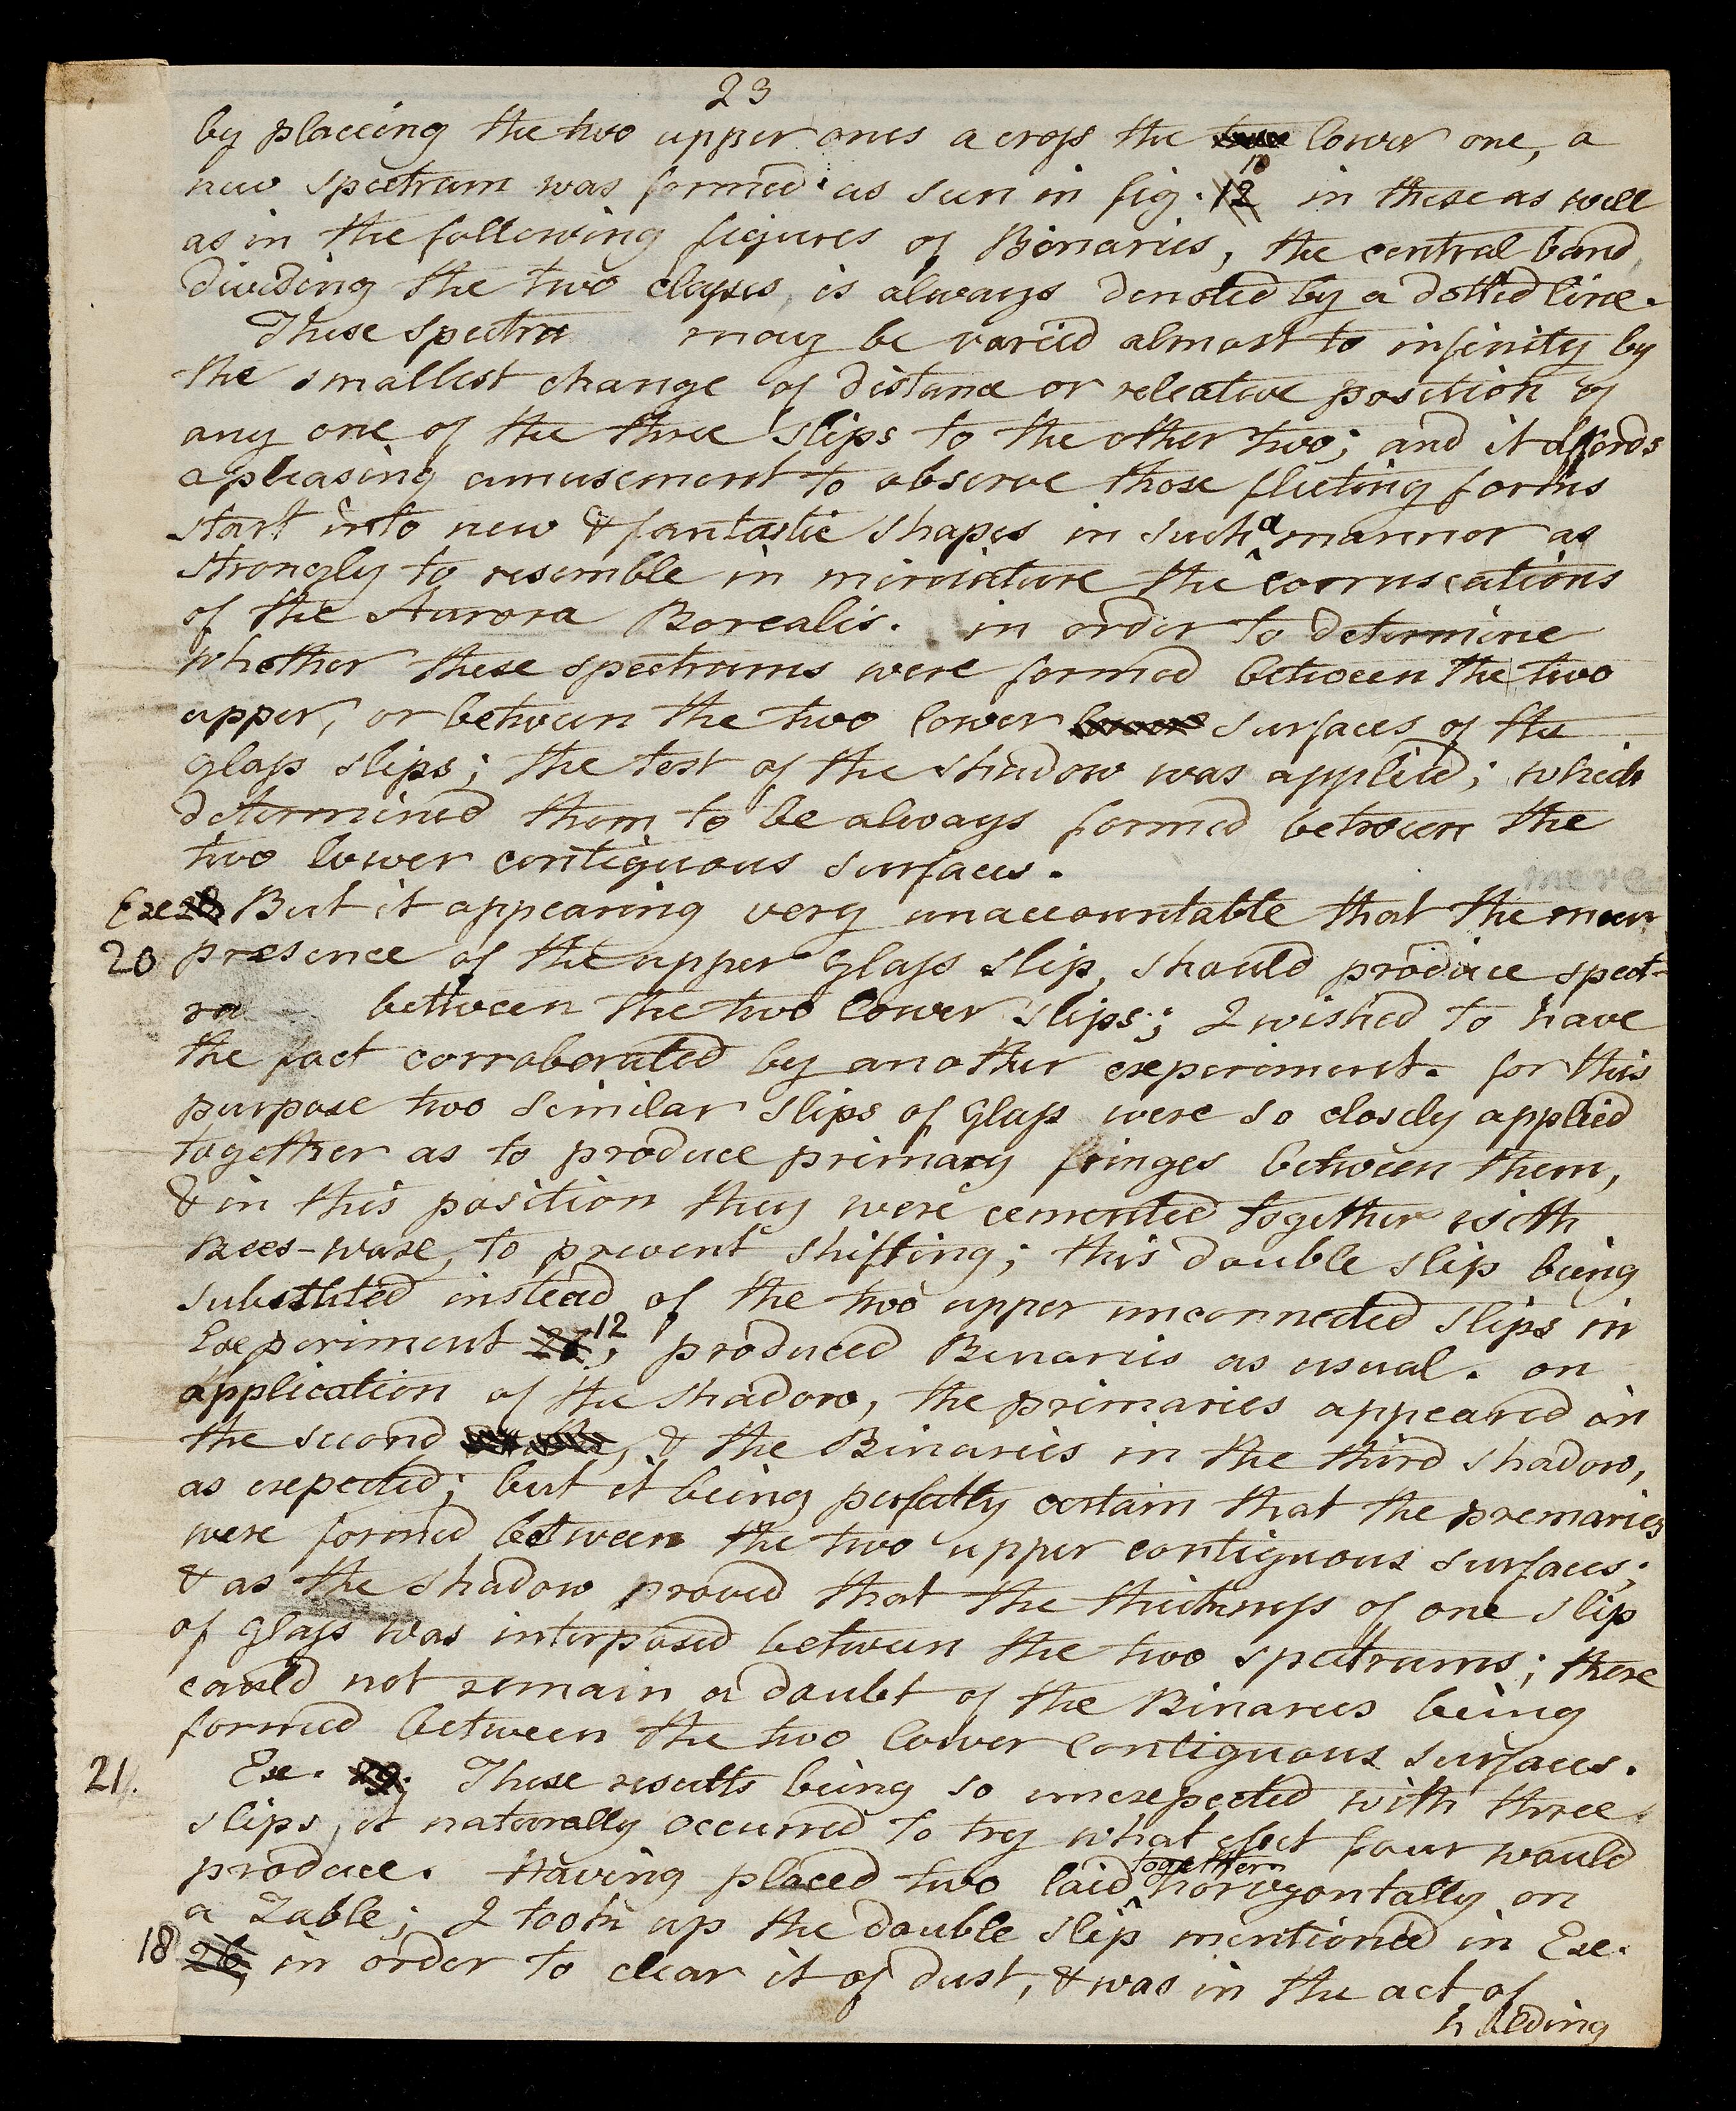 23
by placeing the two upper ones across the lower one, a
new spectrum was formed as seen in fig. 12 10 in these as well
as in the following figures of Binaries, the central band
dividing the two classes, is always denoted by a dotted line.
These spectra may be varied almost to infinity by
the smallest change of distance or releative position of
any one of the three slips to the other two; and it affords
a pleasing amusement to observe those fleeting forms
start into new & fantastic shapes in such a mannor as
strongly to resemble in miniature the corruscations
of the Aurora Borealis. in order to determine
whether these spectrums were formed between the two
upper, or between the two lower surfaces of the
glass slips; the test of the shadow was applied; which
determined them to be always formed between the
two lower contiguous surfaces.
Exe 28 But it appearing very unaccountable that the meer
mere
20 presence of the upper glass slip, should produce spect-
ra between the two lower slips; I wished to have
the fact corroborated by another experiment. for this
purpose two similar slips of glass were so closely applied
together as to produce primary fringes between them,
& in this position they were cemented together with
Bees-waxe, to prevent shifting; this double slip being
substituted instead of the two upper unconnected slips in
Experiment 12, produced Binaries as usual. on
application of the shadow, the primaries appeared in
the second , & the Binaries in the third shadow,
as expected; but it being perfectly certain that the premaries
were formed between the two upper contiguous surfaces;
& as the shadow proved that the thickness of one slip
of glass was interposed between the two spectrums; there
could not remain a doubt of the Binaries being
formed between the two lower contiguous surfaces.
21. Exe. 29. These results being so unexpected with three
slips, it naturally occurred to try what efect four would
produce. Having placed two laid together horizontally on
a Table; I took up the double slip mentioned in Exe.
18 26, in order to clear it of dust, & was in the act of
holding